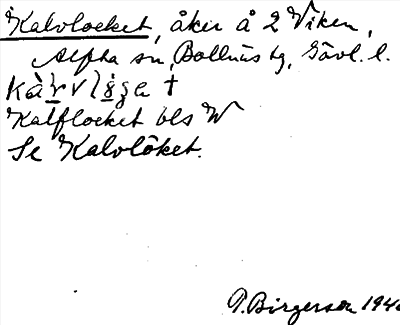 Kalvlocket, åker å 2 Viken,
Alfta sn, Bollnäs tg, Gävl. l.
Kalflocket bls W
Se Kalvlöket.
P. Birgerson 194